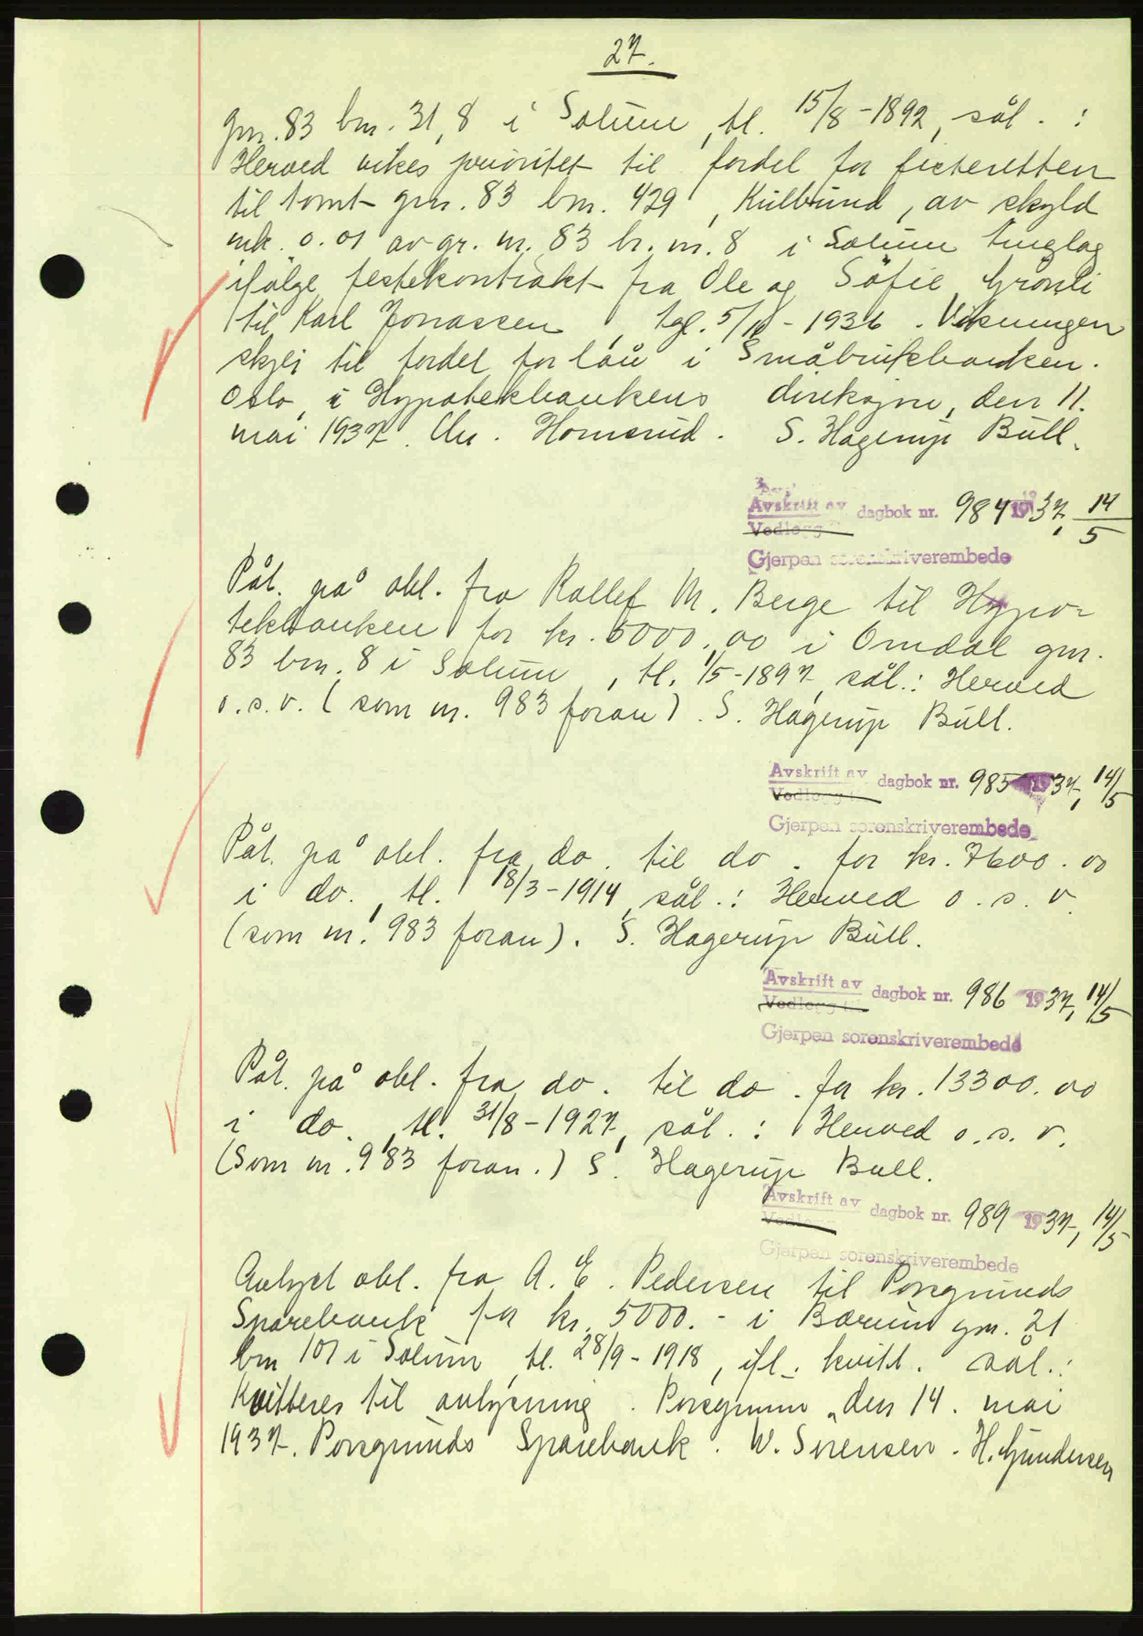 27.
gm. 83 bm. 31, 8 i Solum, tl. 15/8-1892, sål. :
Herved vikes prioritet til fordel for festeretten
til tomt gm. 83 bm. 429, Kulbund, av skyld
mk. 0.01 av gr. nr. 83 br. nr. 8 i Solum tinglag
ifølge festekontrakt fra Ole og Sofie Grønli
til Karl Jonassen, tgl. 5/10-1936. Vikningen
skjer til fordel for lån i Småbrukbanken.
Oslo, i Hypotekbankens direksjon, den 11.
mai 1937. Chr. Homsrud. S. Hagerup Bull.
Avskrift av dagbok nr. 984 1937, 14/5
Vedlegg
Gjerpen sorenskriverembede
Påt. på obl. fra Rollef M. Berge til Hypo-
tekbanken for kr. 5000,00 i Omdal gm.
83 bm. 8 i Solum, tl. 1/5-1897, sål.: Herved
o.s.v. (som nr. 983 foran). S. Hagerup Bull.
Avskrift av dagbok nr. 985 1937, 14/5
Vedlegg
Gjerpen sorenskriverembede
Påt. på obl. fra do. til do. for kr. 7600.00
i do., tl. 18/3-1914, sål.: Herved o.s.v.
(som nr. 983 foran). S. Hagerup Bull.
Avskrift av dagbok nr. 986 1937, 14/5
Vedlegg
Gjerpen sorenskriverembede
Påt. på obl. fra do. til do. for kr. 13300.00
i do., tl. 31/8-1927, sål. : Herved o.s.v.
(Som nr. 983 foran.) S. Hagerup Bull.
Avskrift av dagbok nr. 989 1937, 14/5
Gjerpen sorenskriverembede
Avlyst obl. fra A. E. Pedersen til Porsgrunds
Sparebank for kr. 5000.- i Bærum gm. 21
bm 107 i Solum, tl. 28/9-1918, ifl. kvitt. sål.:
Kvitteres til avlysning. Porsgrunn, den 14. mai
1937. Porsgrunds Sparebank. W. Sørensen. H. Gundersen